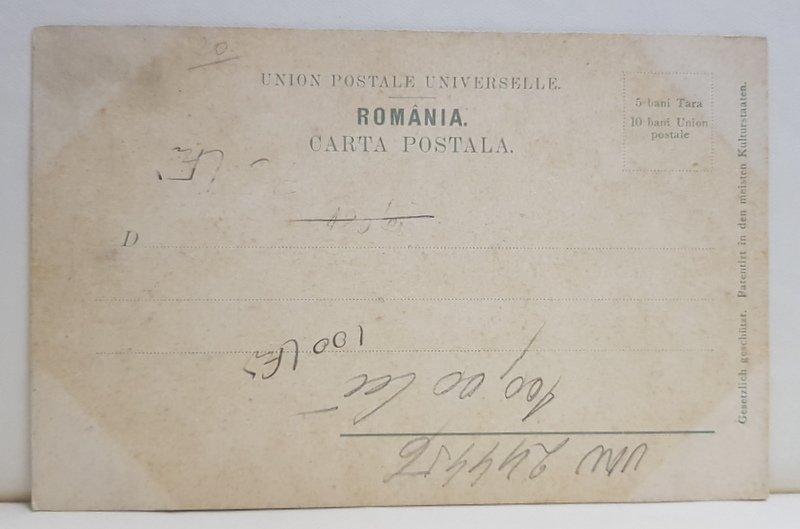 20
UNION POSTALE UNIVERSELLE.
ROMÂNIA.
CARTA POSTALA.
5 bani Tara
10 bani Union
postale
D
100
100,00 lei
244456
Gesetzlich geschützt. Patentirt in den meisten Kulturstaaten.